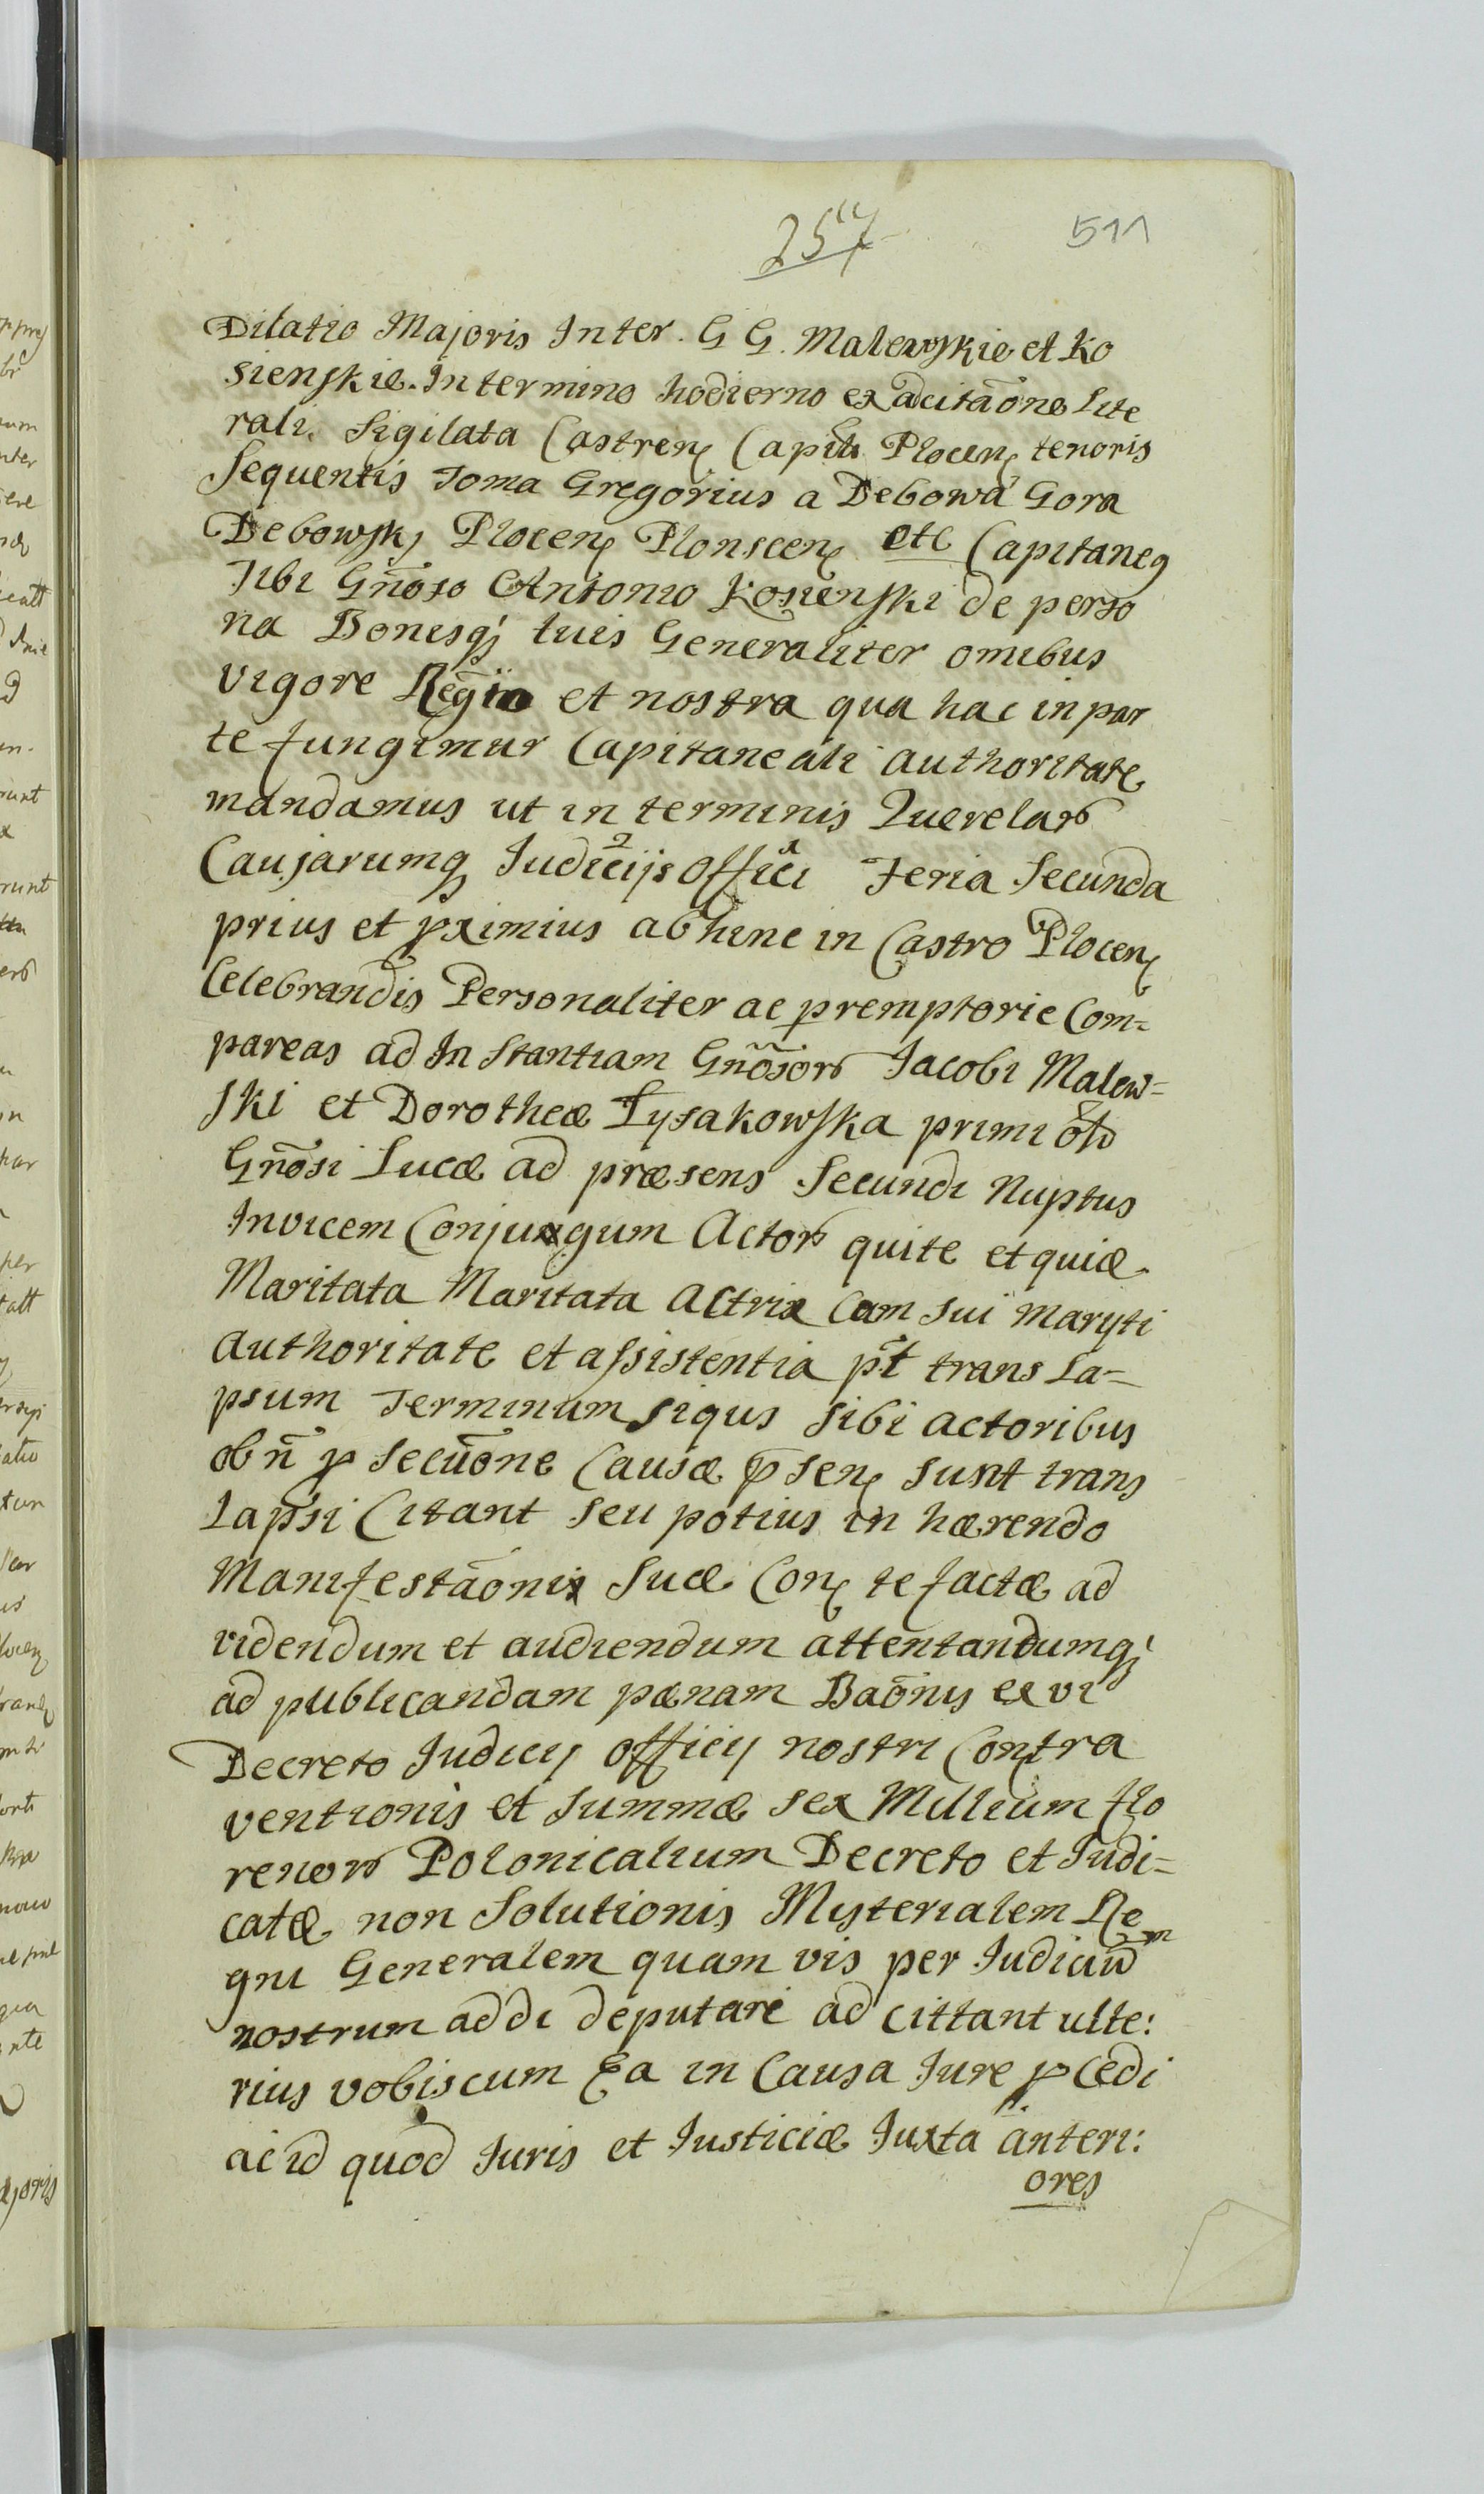 257
511
Dilatio Majoris Inter. G G. Malewskie et Ko
sienskie. In termino hodierno ex adcitãone Lite
rali. Sigilata Castren Capitli Plocen tenoris
Sequentis Toma Gregorius a Debowa Gora
Debowskj Plocen Plonscen etc Capitaneq
Tibi Gñoso Antonio Kosienski de perso
na Bonisq; tuis Generaliter omibus
vigore Regia et nostra qua hac in par
te fungimur Capitaneali authoritate
mandamus ut in terminis Querelarō
Causarumq Judicijs offici Feria Secunda
prius et pximius ab hinc in Castro Plocen
Celebrandis Personaliter ac premptorie Com=
pareas ad Instantiam Gñosorō Jacobi Malew=
ski et Dorotheæ Łysakowska primi oto
Gñosi Lucæ ad præsens Secundi Nuptus
Invicem Conjugum Actorō quite et quiæ
Maritata Maritata Actrix Cam sui maryti
authoritate et assistentia pt trans La=
psum Terminum siqus sibi actoribus
ob ñ p secuõne Causæ psen sunt trans
Lapsi Citant seu potius in hærendo
Manifestãonis Suæ Con te factæ ad
videndum et audiendum attentandumq;
ad publicandam pænam Baõnis ex vi
Decreto Judicij officij nostri Contra
ventionis et summæ sex Millium flo
renorō Polonicalium Decreto et Judi=
catæ non Solutionis Misterialem Re
gni Generalem quam vis per Judicium
nostrum addi deputari ad cittant ulte:
rius vobiscum Ea in Causa Jure p Cedi
ac id quod Juris et Justiciæ Juxta anteri:
ores